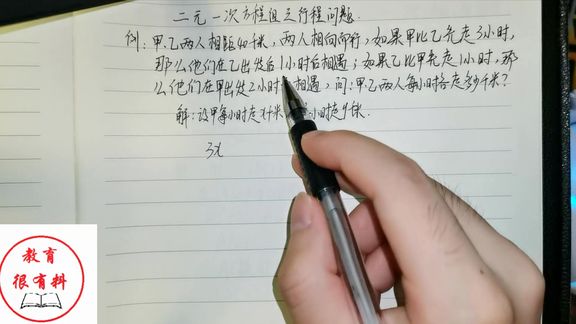 二元一次方程组之行程问题.
例:甲、乙两人相距40千米,两人相向而行,如果甲比乙先走3小时,
那么他们在乙出发后1小时后相遇;如果乙比甲先走1小时,那
么他们在甲出发2小时 相遇,问:甲、乙两人每小时各走多少千米?
解:设甲每小时走x千米 小时走y千米.
3x
教育
很有料